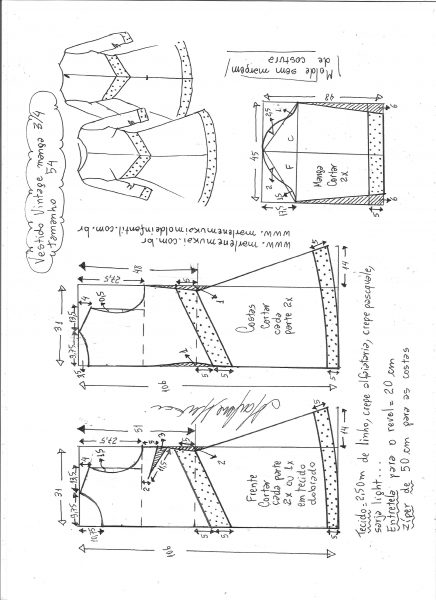 Vestido Vintage manga 3/4
tamanho 54
Molde sem margem
de costura
48
45
2,5
1
2
1,5
17,5
F
C
Manga
Cortar
2x
5
6
6
www.marlenemukai.com.br
www.marlenemukaimoldeinfantil.com.br
31
9,75
13,5
3,5
4
0,5
27,5
48
1
5
5
Costas
Cortar
cada
parte 2x
5
14
106
31
9,75
13,5
10,75
4
1,5
27,5
51
5
3
2
2
5
5
Frente
Cortar
cada parte
2x ou 1x
em tecido
dobrado
5
14
106
Tecido: 2,50m de linho, crepe alfaiataria, crepe pascquale,
sarja light...
Entretela para o revel = 20 cm
zíper de 50 cm para as costas